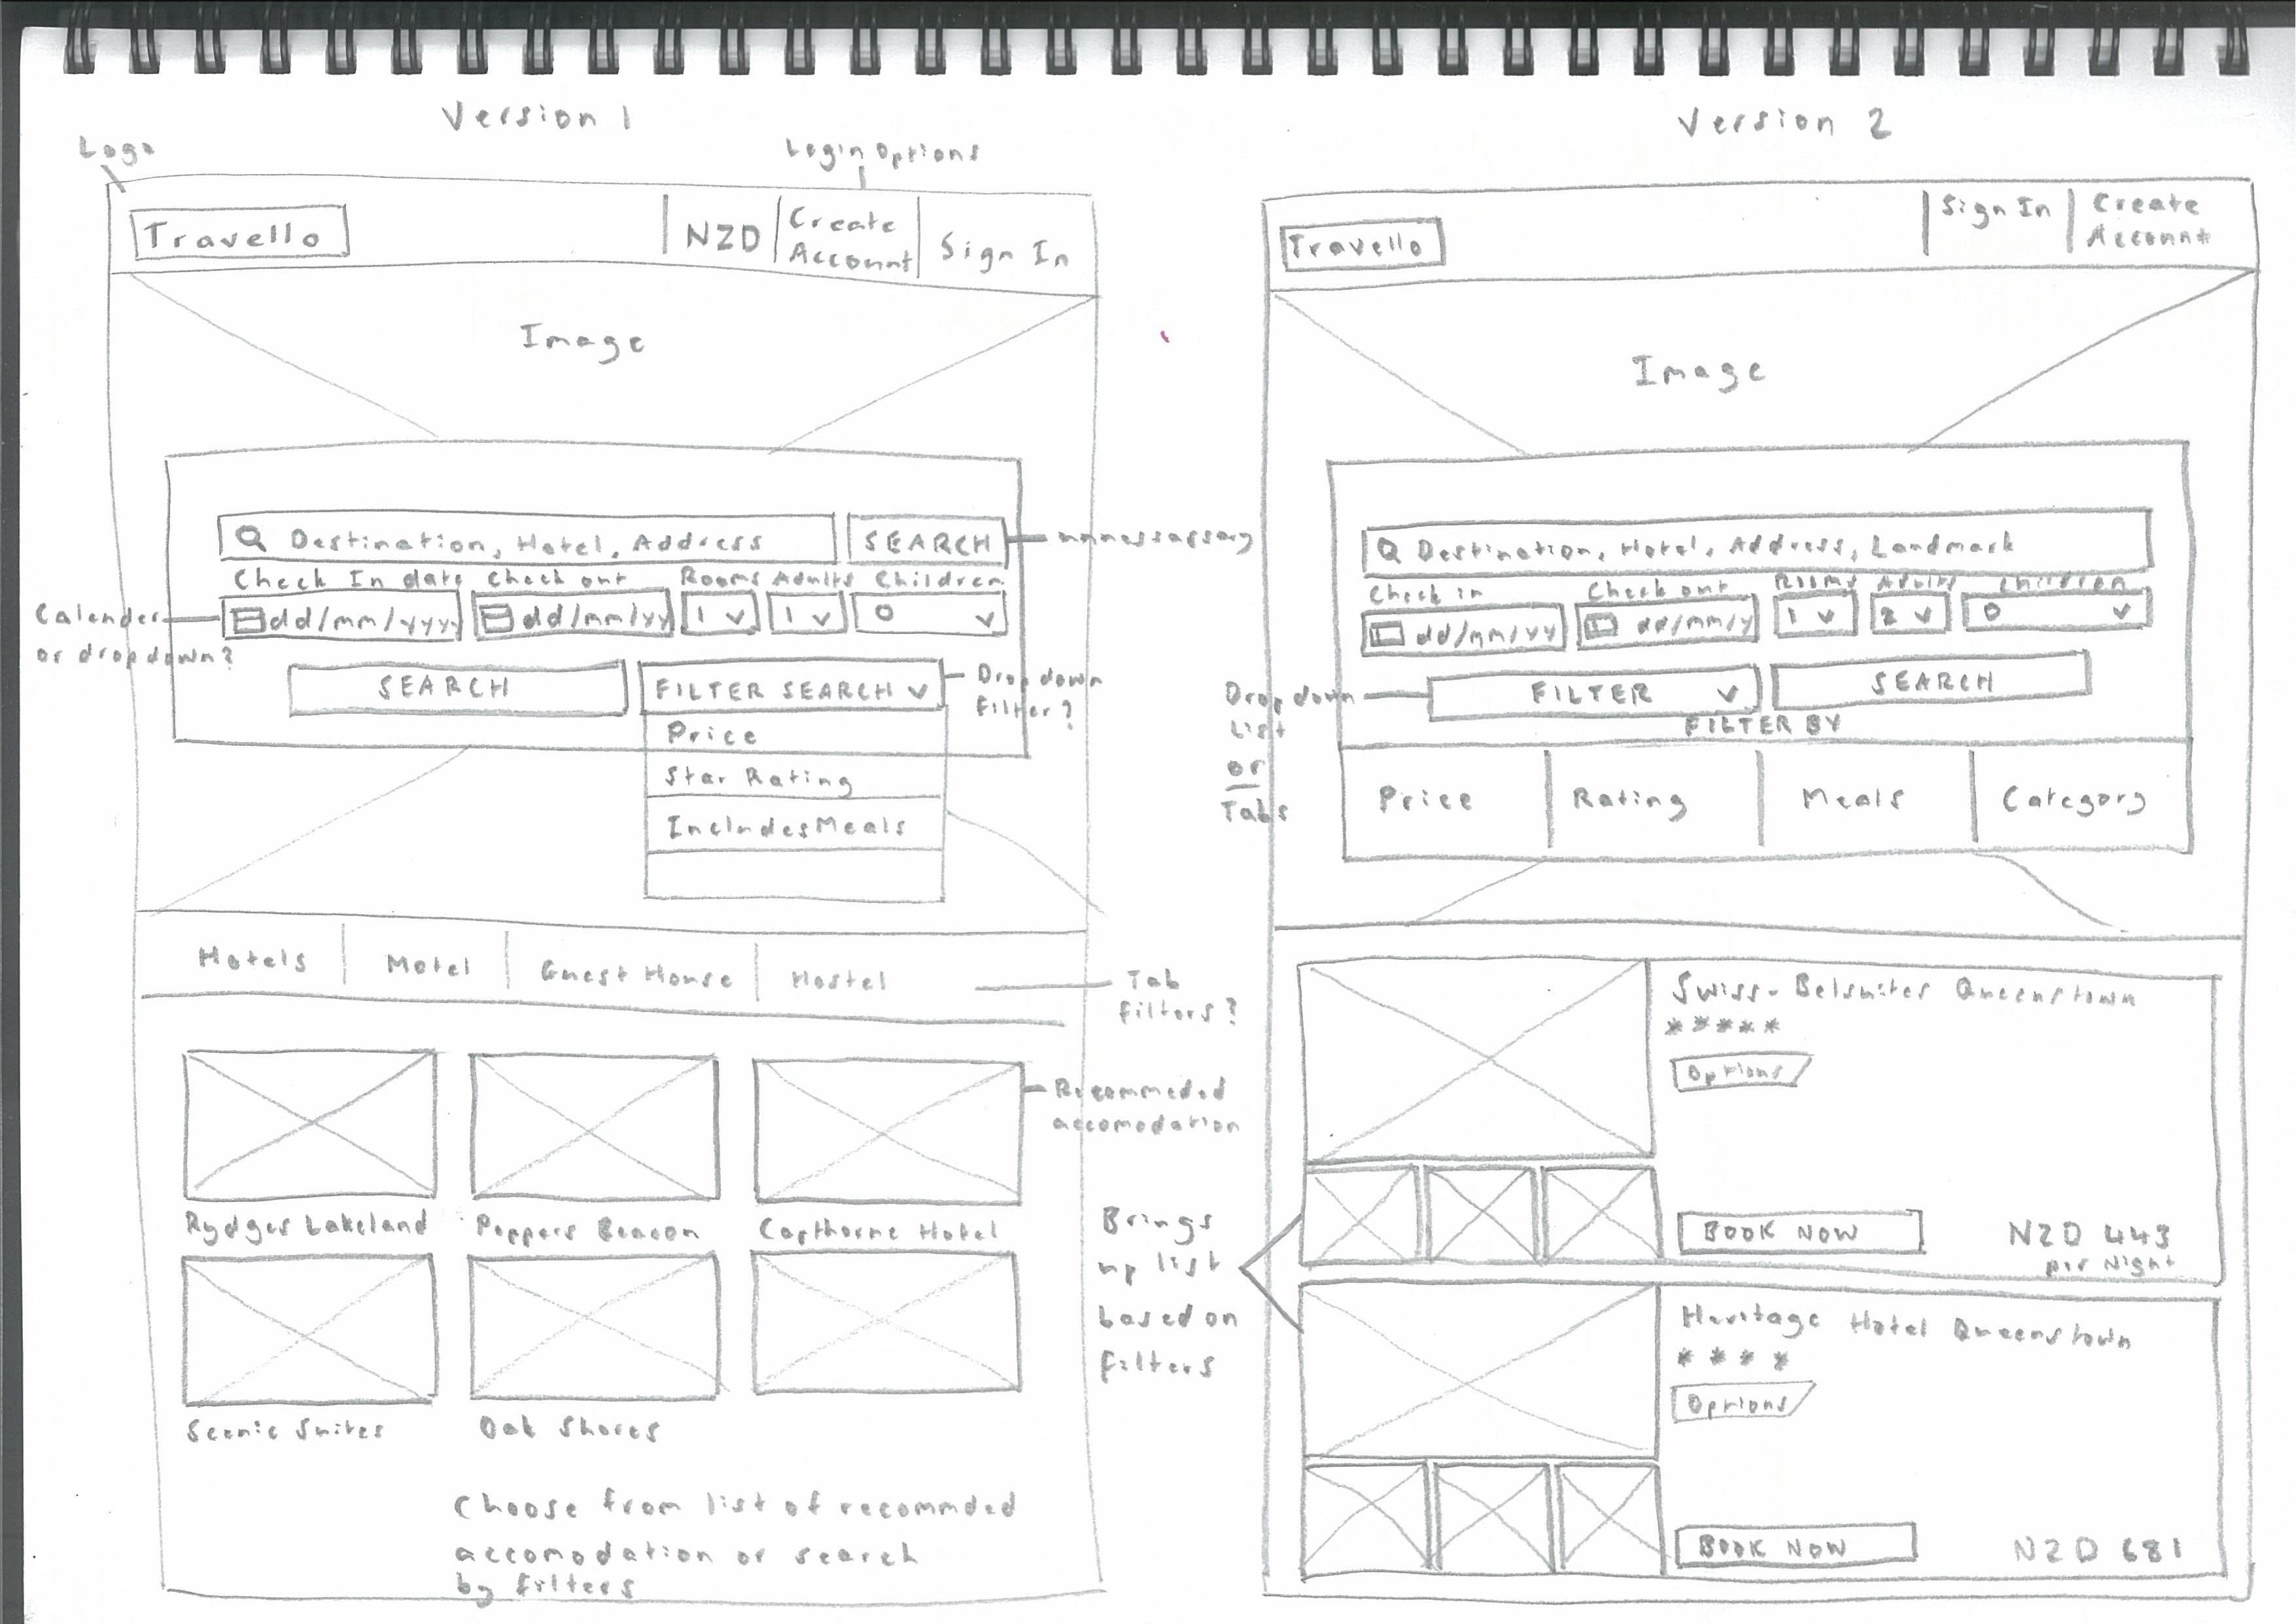 Version 1
Logo
Login Options
Travello
NZD
Create
Account
Sign In
Image
Destination, Hotel, Address
SEARCH
unnessarsary
Check In date
Check out
Rooms
Adults
Children
Calender
or dropdown?
dd/mm/yyyy
dd/mm/yy
1
1
0
SEARCH
FILTER SEARCH
Drop down
filter?
Price
Star Rating
Includes Meals
Hotels
Motel
Guest House
Hostel
Tab
filters?
Recommeded
accomodation
Rydges Lakeland
Peppers Beacon
Copthorne Hotel
Scenic Suites
Oak Shores
Choose from list of recommded
accomodation or search
by filters
Version 2
Travello
Sign In
Create
Account
Image
Destination, Hotel, Address, Landmark
Check in
Check out
Rooms
Adults
Children
dd/mm/yy
dd/mm/y
1
2
0
Drop down
List
or
Tabs
FILTER
SEARCH
FILTER BY
Price
Rating
Meals
Category
Swiss-Belsuites Queenstown
*****
Options
BOOK NOW
NZD 443
per Night
Brings
up list
based on
filters
Heritage Hotel Queenstown
****
Options
BOOK NOW
NZD 681